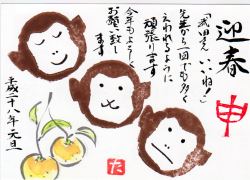 迎春
申
「武田さん いいね!」と
先生から一回でも多く
言われるように
頑張ります
今年もよろしく
お願い致し
ます
平成二十八年元旦
た